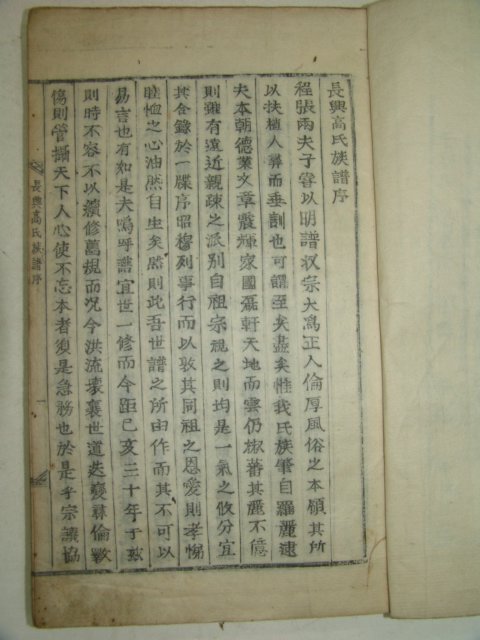 長興高氏族譜序
程張兩夫子嘗以明譜收宗大爲正人倫厚風俗之本領其所
以扶植人彛而垂訓也可謂至矣盡矣惟我氏族肇自羅麗逮
夫本朝德業文章震輝家國磊軒天地而雲仍椒蕃其麗不億
則雖有遠近親疎之派別自祖宗視之則均是一氣之攸分宜
其合錄於一牒序昭穆列事行而以敦其同祖之恩愛則孝悌
睦恤之心油然自生矣然則此吾世譜之所由作而其不可以
易言也有如是夫嗚呼譜宜世一修而今距已亥三十年于玆
則時不容不以續修舊規而况今洪流壞襄世道迭變彛倫斁
傷則管攝天下人心使不忘本者須是急務也於是乎宗議協
長興高氏族譜序
一